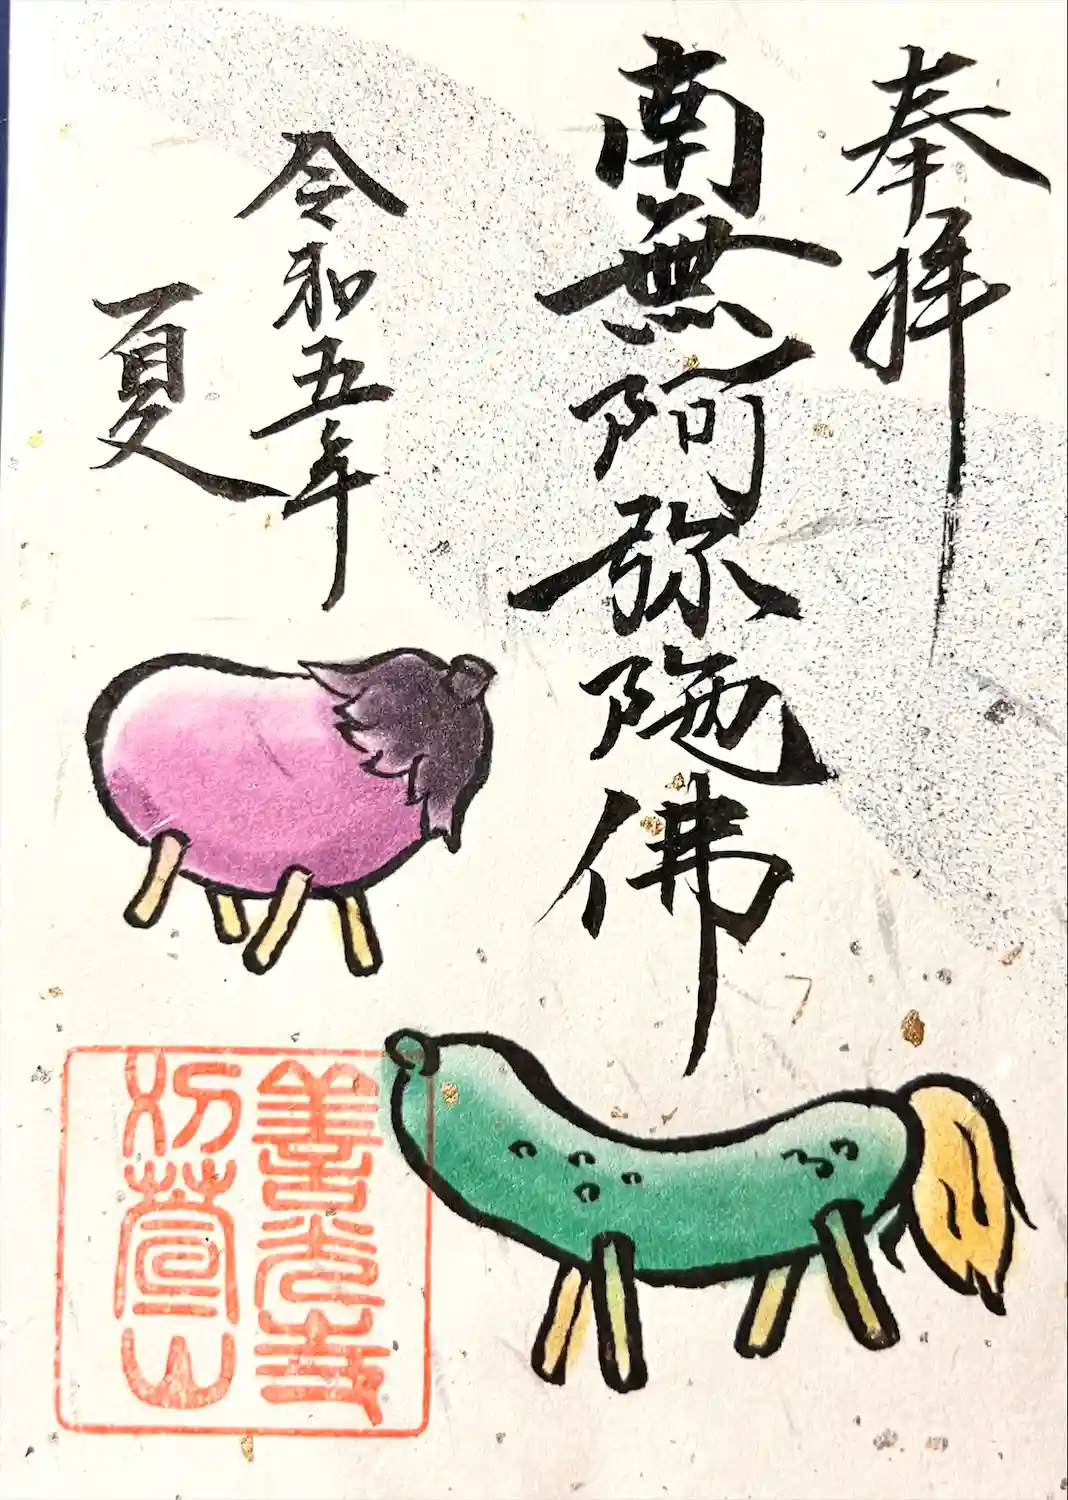 奉拝
南無阿弥陀佛
令和五年
夏
善光寺
切菅山